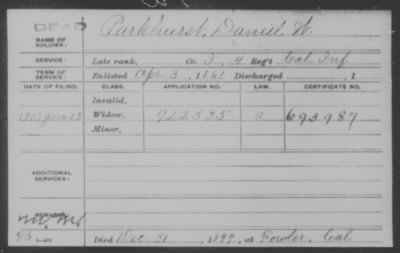 DEAD
NAME OF SOLDIER:
Parkhurst, Daniel W.
SERVICE:
Late rank, Co. I, 4 Reg't Cal. Inf
TERM OF SERVICE:
Enlisted Apr. 3, 1861 Discharged , 1
DATE OF FILING. CLASS. APPLICATION NO. LAW. CERTIFICATE NO.
Invalid,
Widow, 922535 693987
Minor,
ADDITIONAL SERVICES:
REMARKS:
Died Dec. 31, 1899, at Fowler, Cal